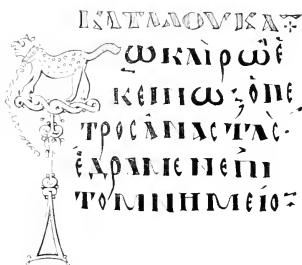 ΚΑΤΑ ΛΟΥΚΑ⁘
Τῶ ΚΑΙΡῶ Ἐ
ΚΕΙΝΩ· Ὁ ΠΕ
ΤΡΟC ἈΝΑCΤᾺC·
ἜΔΡΑΜΕΝ ἘΠῚ
ΤΟ ΜΝΗΜΕΙΟ⁘